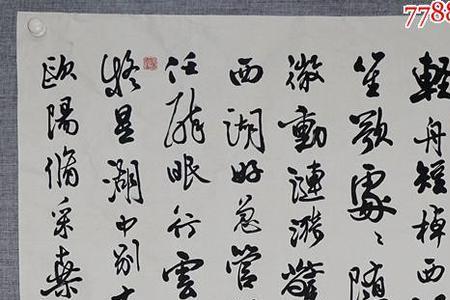 7788
輕舟短棹西
笙歌處〻随
微動漣漪驚
西湖好急管
任醉眠行雲
疑是湖中别有
歐陽脩采桑